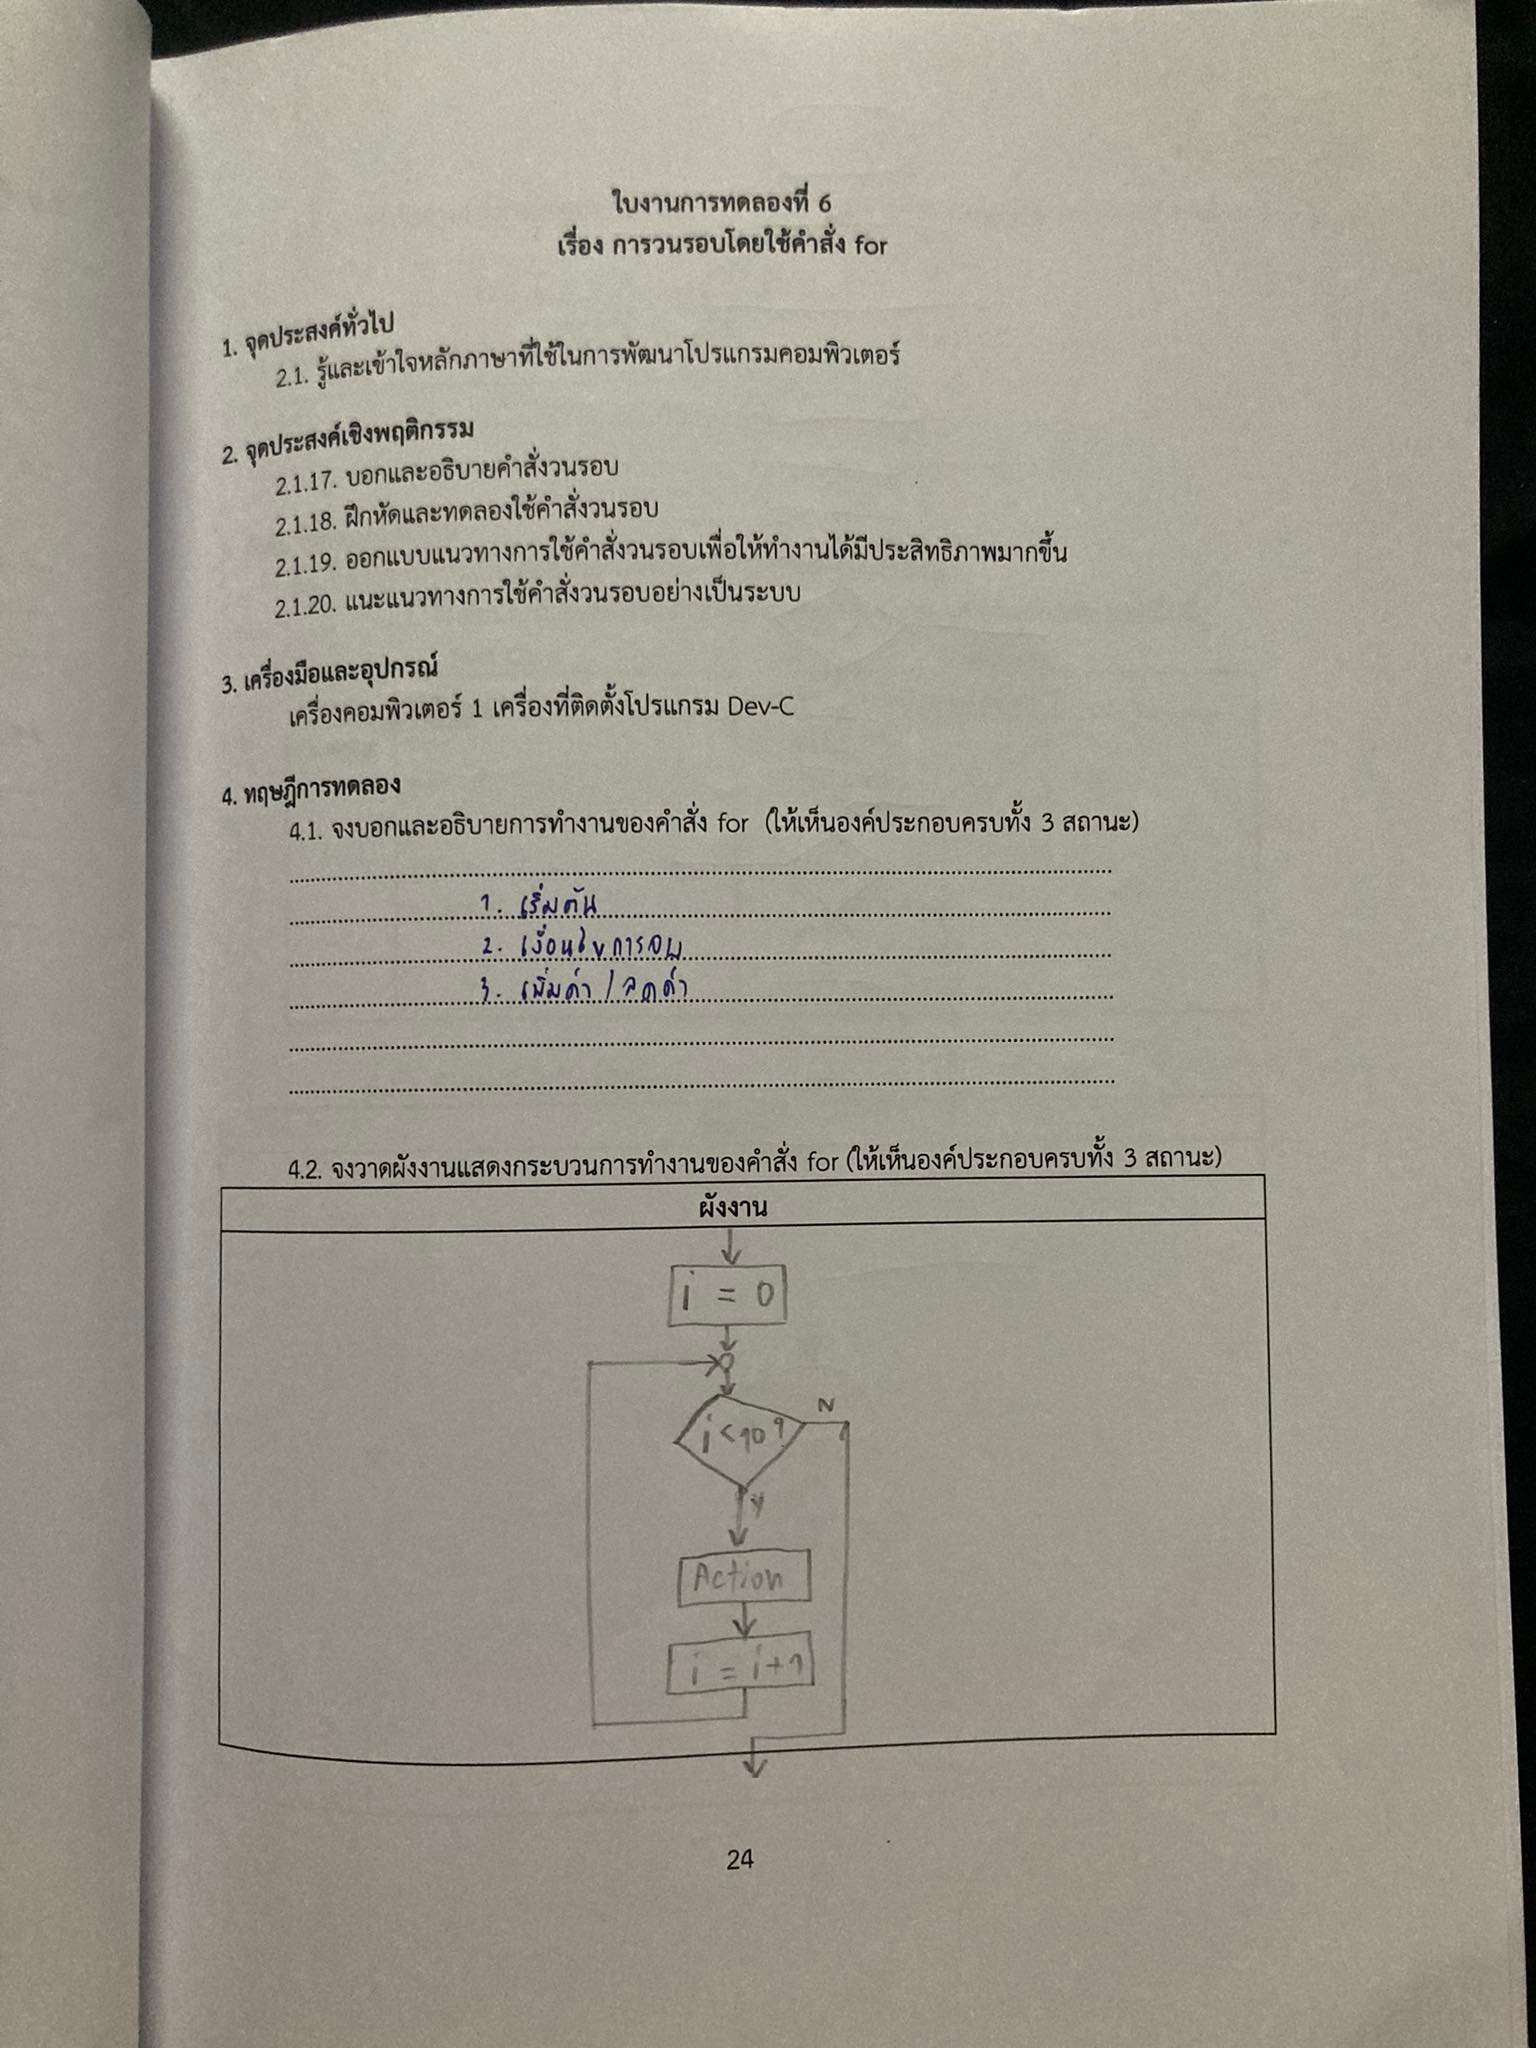 ใบงานการทดลองที่ 6
เรื่อง การวนรอบโดยใช้คำสั่ง for
1. จุดประสงค์ทั่วไป
2.1. รู้และเข้าใจหลักภาษาที่ใช้ในการพัฒนาโปรแกรมคอมพิวเตอร์
2. จุดประสงค์เชิงพฤติกรรม
2.1.17. บอกและอธิบายคำสั่งวนรอบ
2.1.18. ฝึกหัดและทดลองใช้คำสั่งวนรอบ
2.1.19. ออกแบบแนวทางการใช้คำสั่งวนรอบเพื่อให้ทำงานได้มีประสิทธิภาพมากขึ้น
2.1.20. แนะแนวทางการใช้คำสั่งวนรอบอย่างเป็นระบบ
3. เครื่องมือและอุปกรณ์
เครื่องคอมพิวเตอร์ 1 เครื่องที่ติดตั้งโปรแกรม Dev-C
4. ทฤษฎีการทดลอง
4.1. จงบอกและอธิบายการทำงานของคำสั่ง for (ให้เห็นองค์ประกอบครบทั้ง 3 สถานะ)
1. เริ่มต้น
2. เงื่อนไขการจบ
3. เพิ่มค่า / ลดค่า
4.2. จงวาดผังงานแสดงกระบวนการทำงานของคำสั่ง for (ให้เห็นองค์ประกอบครบทั้ง 3 สถานะ)
ผังงาน
i = 0
i < 10 ?
N
Y
Action
i = i + 1
24